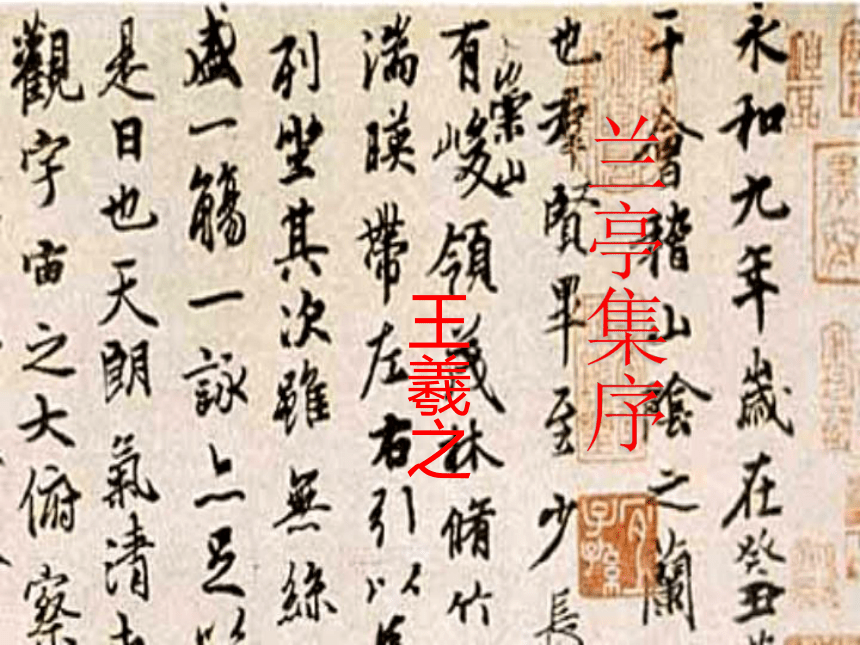 兰亭集序
王羲之
永和九年歲在癸丑
于會稽山陰之蘭
也羣賢畢至少長
崇山
有峻領茂林脩竹
湍暎帶左右引以
列坐其次雖無絲
盛一觴一詠亦足以
是日也天朗氣清
觀宇宙之大俯察